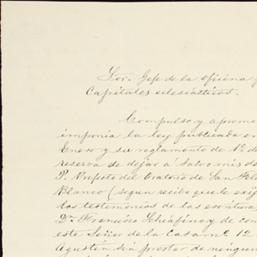 Sor. Gefe de la oficina
Capitales eclesiasticos.
Compulso y apremi
imponia la ley publicada en
Enero y su reglamento de 1º de
reserva de dejar á salvo mis de
P. Prefecto del Oratorio de San Fel
Blanco (segun recibo que le exij
los testimonios de las escrituras
Dn. Francisco Schiafino y de con
este Señor de la Casa nº 12
Agustin sin prestar de ningun